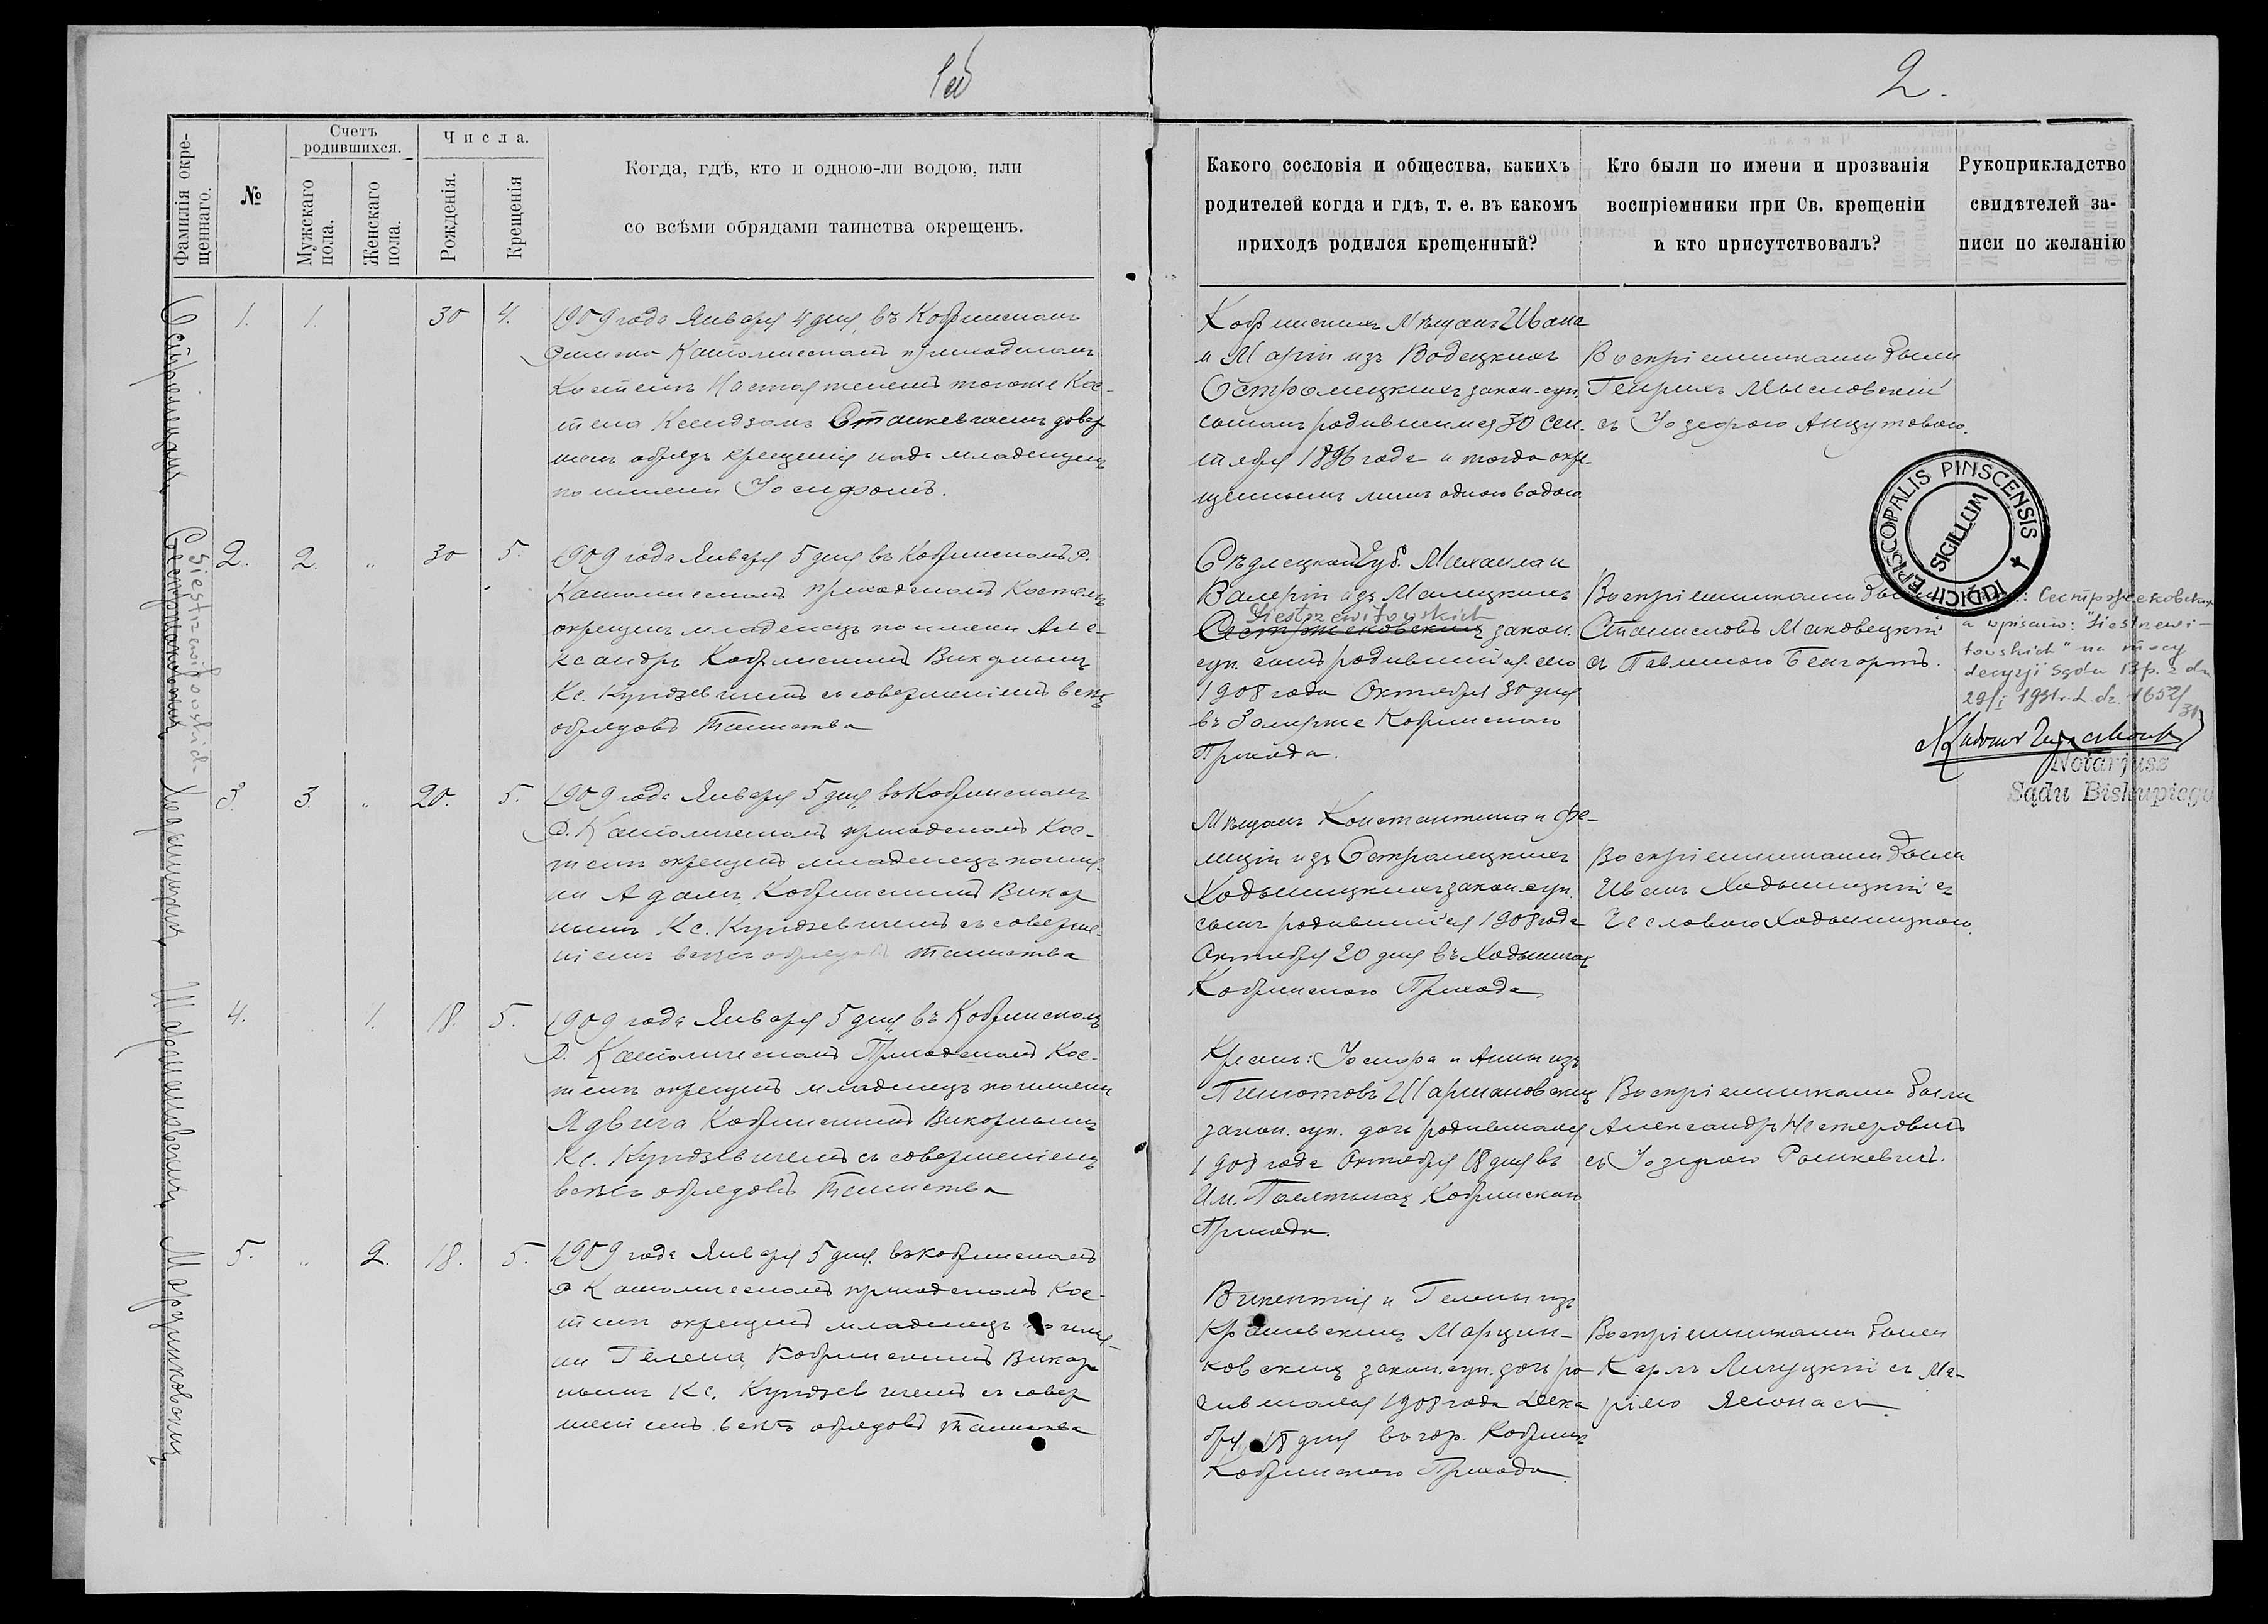 1об
2.
Фамилія окрещеннаго.
№
Счетъ родившихся.
Мужскаго пола.
Женскаго пола.
Числа.
Рожденія.
Крещенія
Когда, гдѣ, кто и одною-ли водою, или
со всѣми обрядами таинства окрещенъ.
Какого сословія и общества, какихъ
родителей когда и гдѣ, т. е. въ какомъ
приходѣ родился крещенный?
Кто были по имени и прозванія
воспріемники при Св. крещеніи
и кто присутствовалъ?
Рукоприкладство
свидѣтелей за-
писи по желанію
Остромецкихъ
1. 1. 30 4.
1909 года Января 4 дня, въ Кобринскомъ
Римско Католическомъ приходскомъ
Костелѣ Настоятелемъ того же Кос-
тела Ксендзомъ Станкевичемъ довер-
шенъ обрядъ крещенія надъ младенцемъ
по имени Іосифомъ.
Кобринскихъ Мѣщанъ Ивана
и Маріи изъ Водецкихъ
Остромецкихъ закон. суп.
сыномъ родившимся 30 Сен-
тября 1896 года и тогда окре-
щеннымъ лишь одною водою.
Воспріемниками были
Генрихъ Мысловскій
съ Іозефою Анцутовою.
Siestrzewitowskich
2. 2. " 30 5.
1909 года Января 5 дня въ Кобринскомъ Р.
Католическомъ приходскомъ Костелѣ
окрещенъ младенецъ по имени Але-
ксандръ Кобринскимъ Викарнымъ
Кс. Кундзевичемъ съ совершеніемъ всѣхъ
обрядовъ Таинства
Сѣдлецкой Губ. Михаила и
Валеріи изъ Малицкихъ
Siestrzewitowskich
закон.
суп. сынъ родившійся сего
1908 года Октября 30 дня
въ Кобринскаго
Прихода.
Воспріемниками были
Станиславъ Маковецкій
съ Павлиною
IUDICII EPISCOPALIS PINSCENSIS
SIGILLUM
a wpisano: "Siestrzewi-
towskich" na mocy
decyzji Sądu Bp. z dn.
29/I 1931 r. L. dz. 1652/31
Notarjusz
Sądu Biskupiego
Ходыницкихъ
3. 3. " 20. 5.
1909 года Января 5 дня въ Кобринскомъ
Р. Католическомъ приходскомъ Кос-
телѣ окрещенъ младенецъ по име-
ни Адамъ, Кобринскимъ Викар-
нымъ Кс. Кундзевичемъ съ соверше-
ніемъ всѣхъ обрядовъ Таинства
Мѣщанъ Константина и Фе-
лиціи изъ Остромецкихъ
Ходыницкихъ закон. суп.
сынъ родившійся 1908 года
Октября 20 дня въ Ходыничахъ
Кобринскаго Прихода
Воспріемниками были
Иванъ Ходыницкій съ
Чеславою Ходыницкою.
Шармановскихъ
4. 1. 18. 5.
1909 года Января 5 дня въ Кобринскомъ
Р. Католическомъ Приходскомъ Кос-
телѣ окрещенъ младенецъ по имени
Ядвига Кобринскимъ Викарнымъ
Кс. Кундзевичемъ съ совершеніемъ
всѣхъ обрядовъ Таинства
Крестьянъ: и Анны изъ
Шармановскихъ
закон. суп. дочь родившаяся
1908 года Октября 18 дня въ
Им. Кобринскаго
Прихода.
Воспріемниками были
Александръ Нестеровичъ
съ Іозефою
Марцинковскихъ
5. " 2. 18. 5.
1909 года Января 5 дня въ Кобринскомъ
Р Католическомъ приходскомъ Кос-
телѣ окрещенъ младенецъ по име-
ни Гелена, Кобринскимъ Викар-
нымъ Кс. Кундзевичемъ съ совер-
шеніемъ всѣхъ обрядовъ Таинства
Викентія и Гелены изъ
Марцин-
ковскихъ закон. суп. дочь ро-
дившаяся 1908 года Дека-
бря 18 дня въ гор. Кобринѣ
Кобринскаго Прихода
Воспріемниками были
Карлъ съ Ма-
ріею